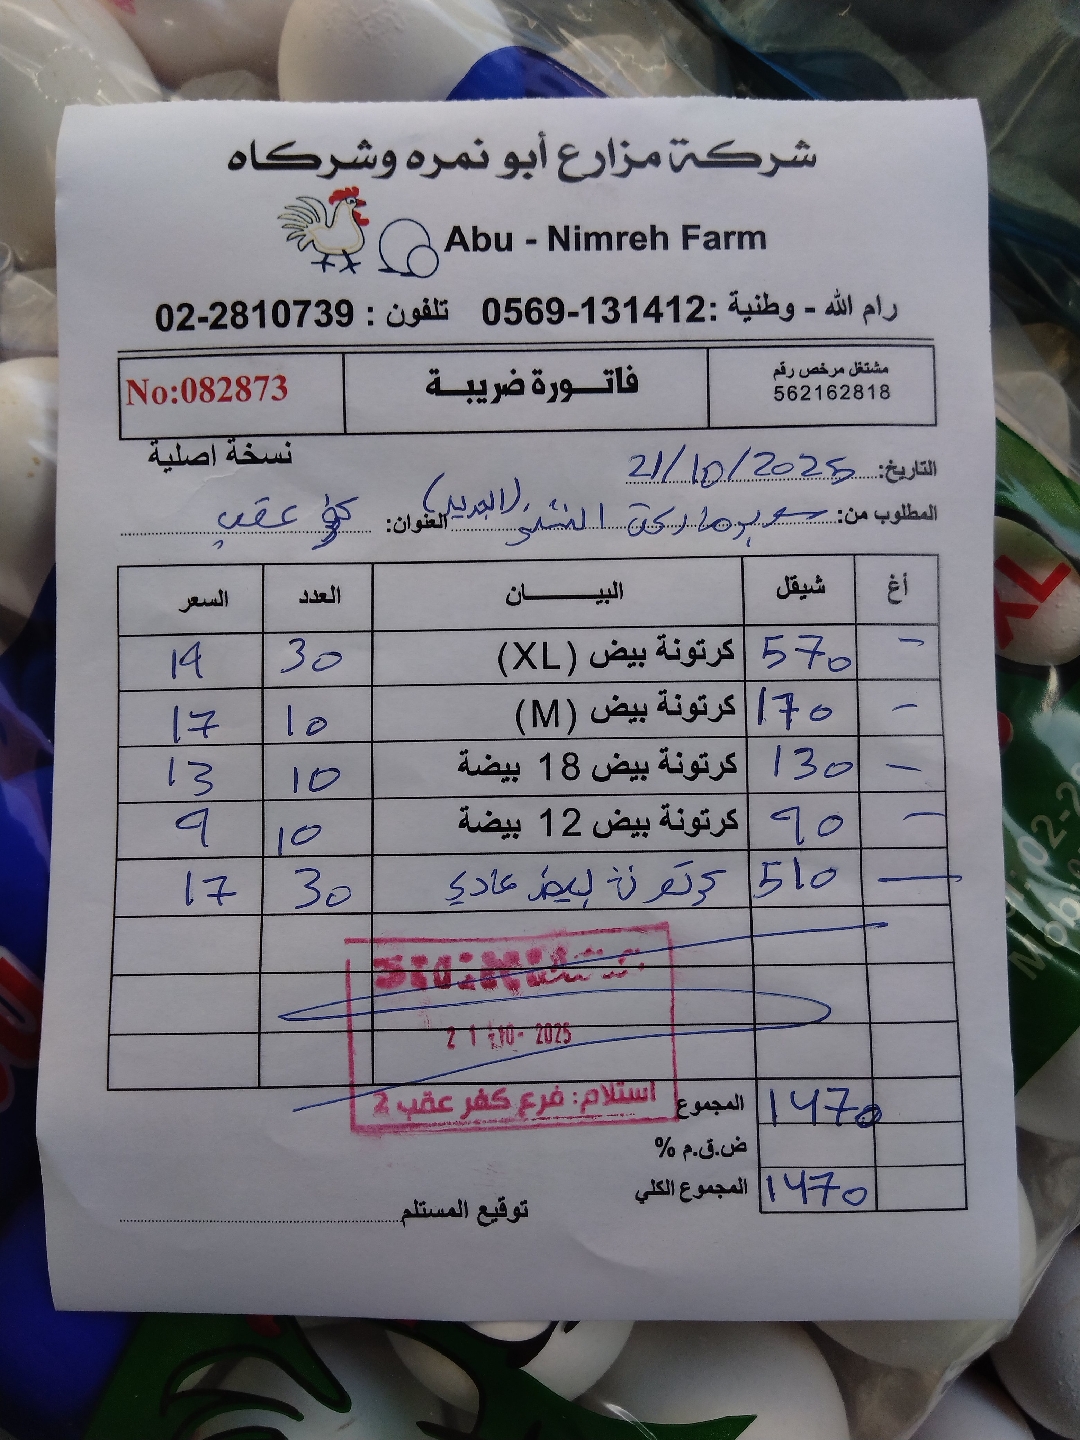 شركة مزارع أبو نمره وشركاه
Abu - Nimreh Farm
رام الله - وطنية :0569-131412 تلفون : 02-2810739
مشتغل مرخص رقم
562162818
فاتورة ضريبة
No:082873
نسخة اصلية
التاريخ: 21/10/2025
المطلوب من: سوبرماركة (الجديد) العنوان: كفر عقب
أغ شيقل البيان العدد السعر
- 570 كرتونة بيض (XL) 30 19
- 170 كرتونة بيض (M) 10 17
- 130 كرتونة بيض 18 بيضة 10 13
- 90 كرتونة بيض 12 بيضة 10 9
- 510 كرتونة بيض عادي 30 17
21 -10- 2025
استلام: فرع كفر عقب 2
المجموع 1470
ض.ق.م %
المجموع الكلي 1470
توقيع المستلم
XL